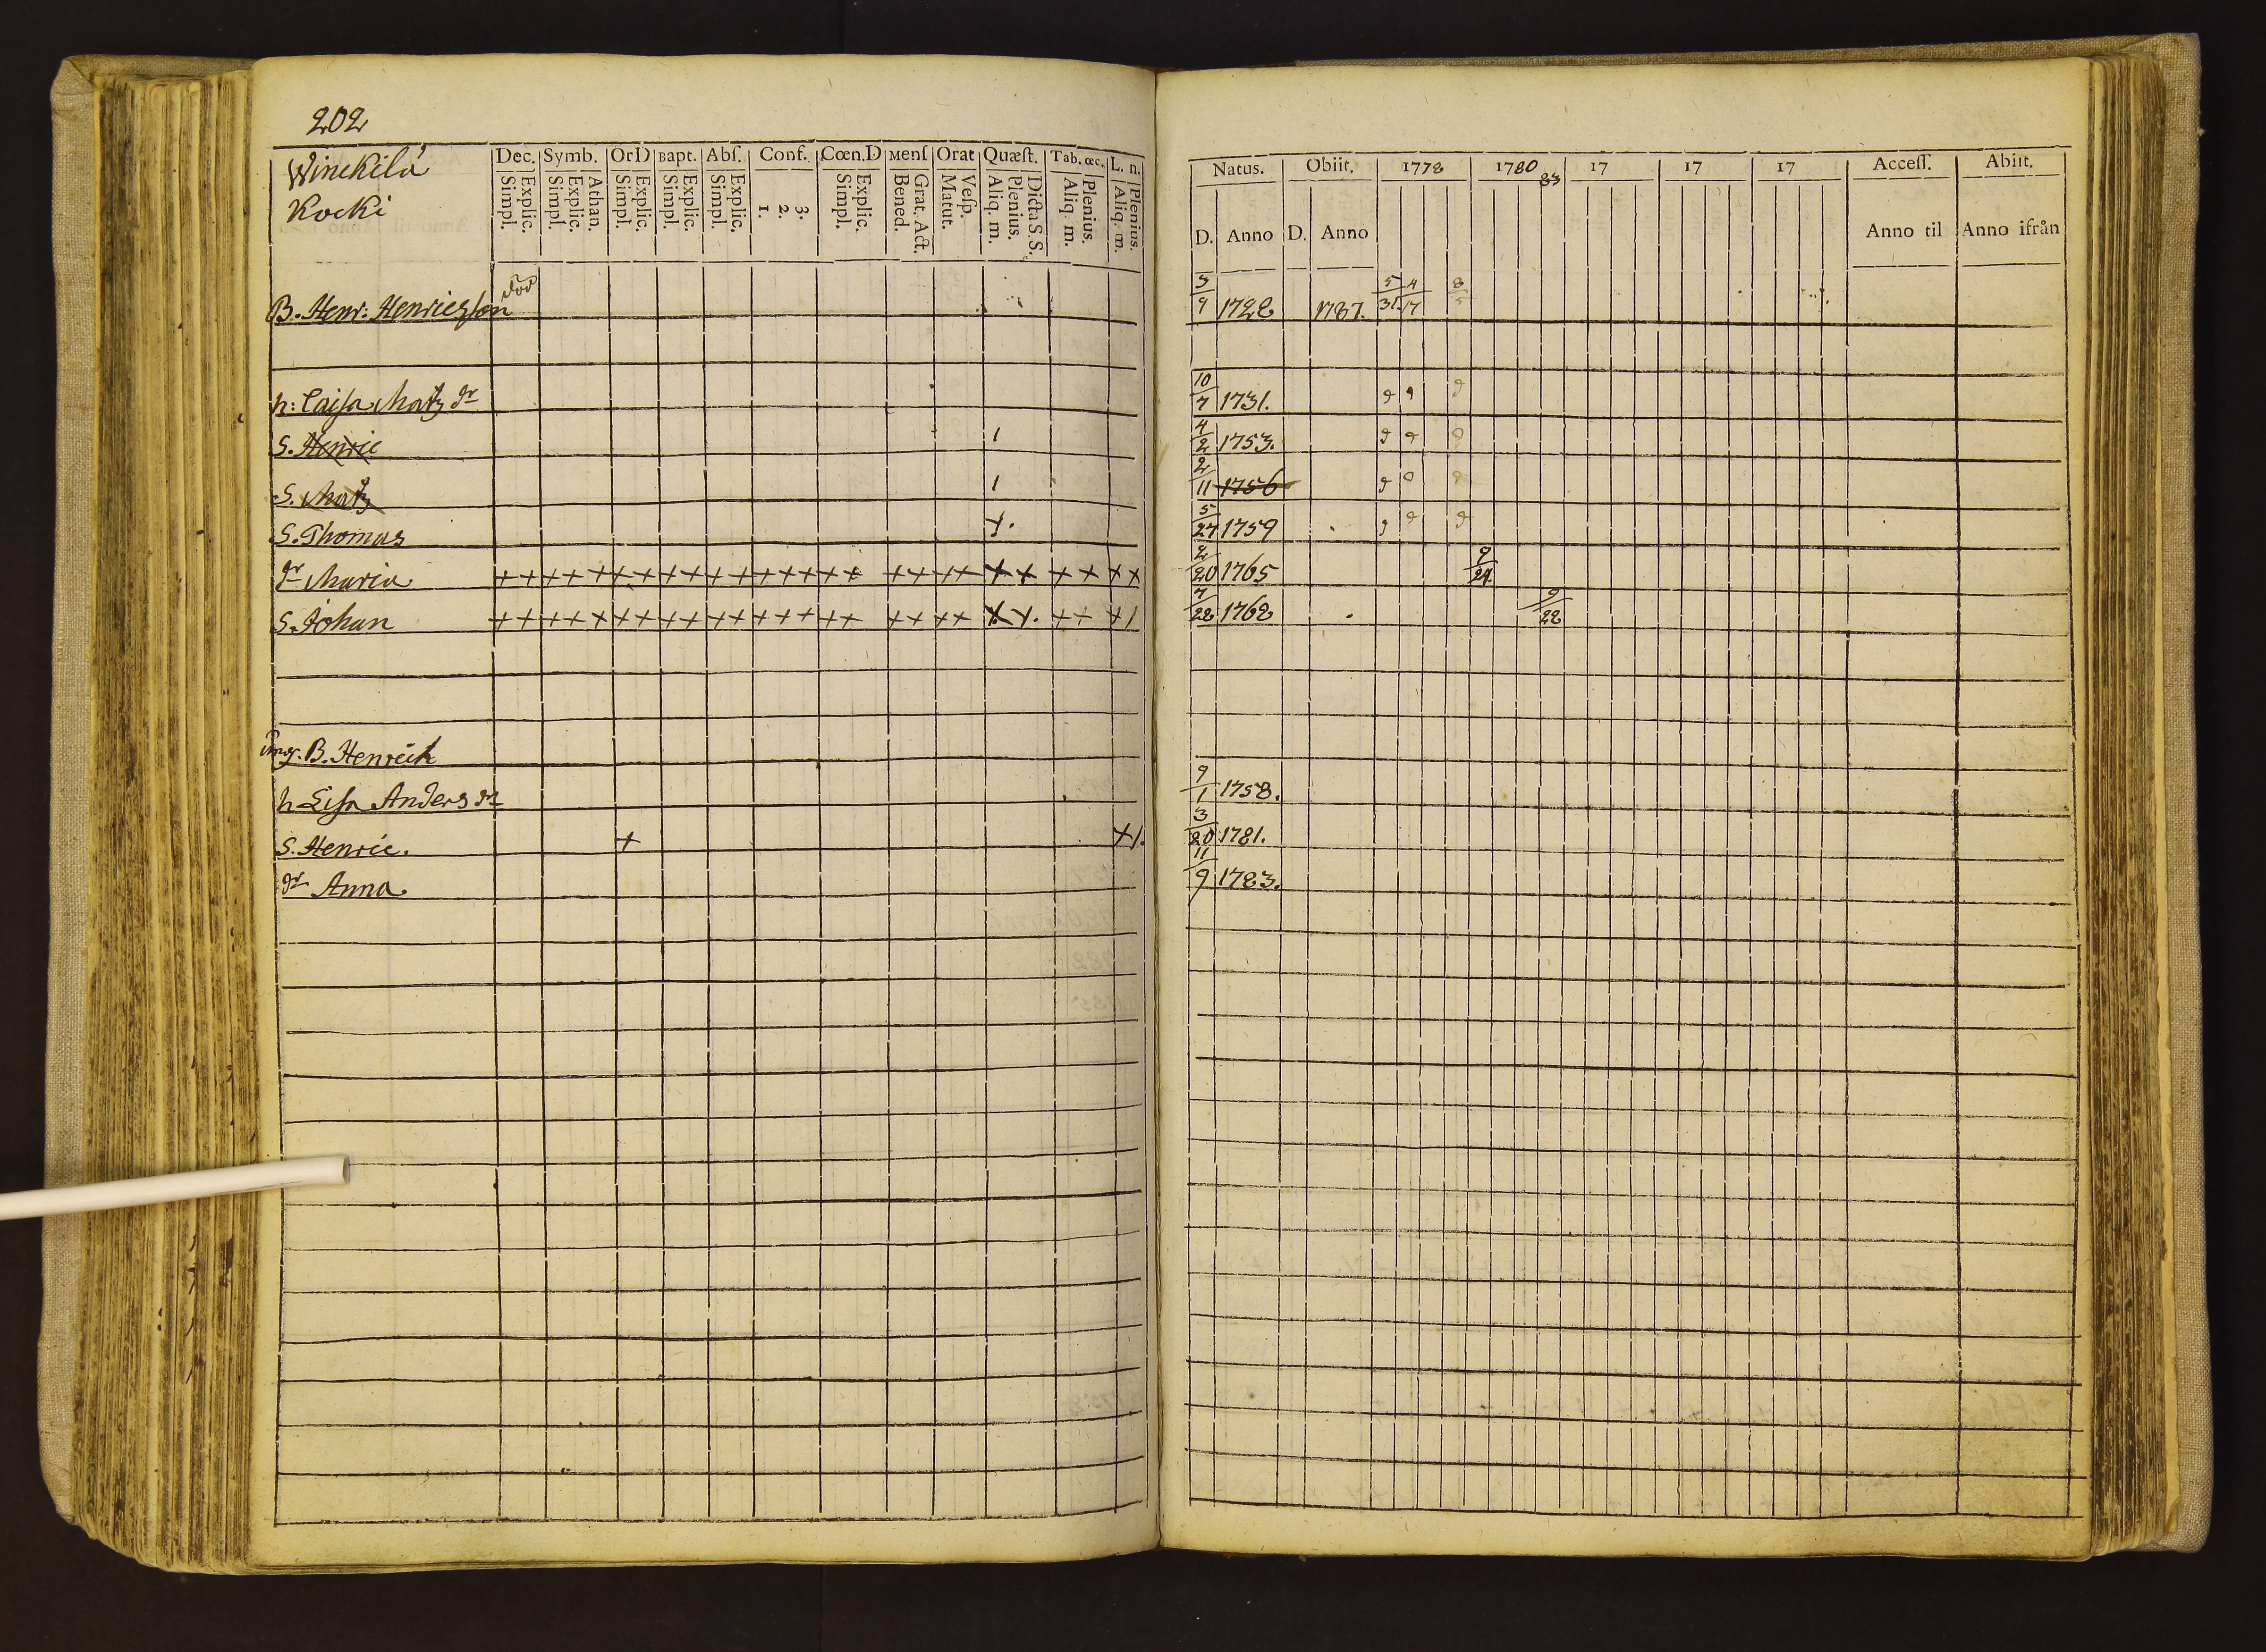 202
Winekilä
Kocki
Dec. Symb. OrD Bapt. Abſ. Conf. Cœn.D Menſ Orat Quæſt. Tab. œc. L. n.
Simpl. Explic. Simpl. Explic. Athan. Simpl. Explic. Simpl. Explic. Simpl. Explic. 1. 2. 3. Simpl. Explic. Bened. Grat. Act. Matut. Veſp. Aliq. m. Plenius. Dicta S.S. Aliq. m. Plenius. Aliq. m. Plenius.
Natus. Obiit. 1778 1780 83 17 17 17 Acceſſ. Abiit.
D. Anno D. Anno Anno til Anno ifrån
B. Henr: Henricsson död 3/9 1728 1787. 5/31. 4/17 8/5
h: Caisa Matz dr 10/7 1731.
S. Henric 1 4/2 1753.
S. Matz 1 2/11 1756
S. Thomas +. 5/27 1759
dr Maria + + + + + + + + + + + + + + + + + + + + + + + + + + 2/20 1765 9/24
S. Johan + + + + + + + + + + + + + + + + + + + + +. + + + 1 7/22 1768 9/22
B. Henrich
h Lisa Anders dr 9/1 1758.
S. Henric. + + 1. 3/20 1781.
dr Anna 11/9 1783.